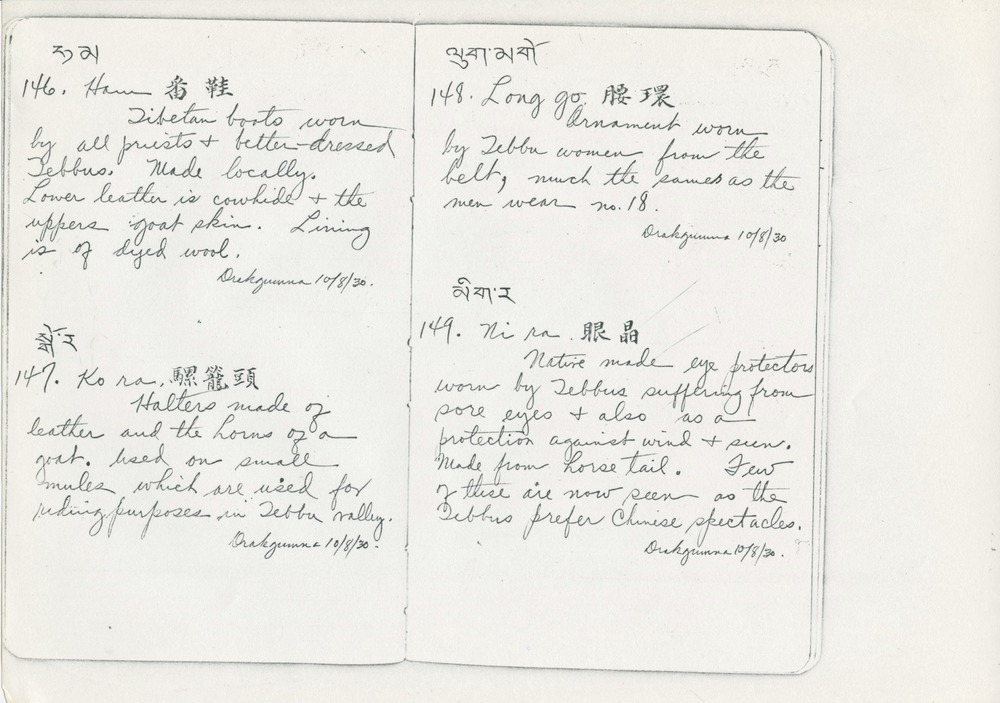 ཧམ
146. Ham 番鞋
Tibetan boots worn
by all priests + better-dressed
Tebbus. Made locally.
Lower leather is cowhide + the
uppers goat skin. Lining
is of dyed wool.
Drakgumna 10/8/30.
147. Ko ra. 騾籠頭
Halters made of
leather and the horns of a
goat. Used on small
mules which are used for
riding purposes in Tebbu valley.
Drakgumna 10/8/30.
ལུག་མགོ
148. Long go. 腰環
Ornament worn
by Tebbu women from the
belt, much the same as the
men wear no. 18.
Drakgumna 10/8/30
མིག་ར
149. Ni ra. 眼晶
Native made eye protectors
worn by Tebbus suffering from
sore eyes + also as a
protection against wind + sun.
Made from horse tail. Few
of these are now seen as the
Tebbus prefer Chinese spectacles.
Drakgumna 10/8/30.